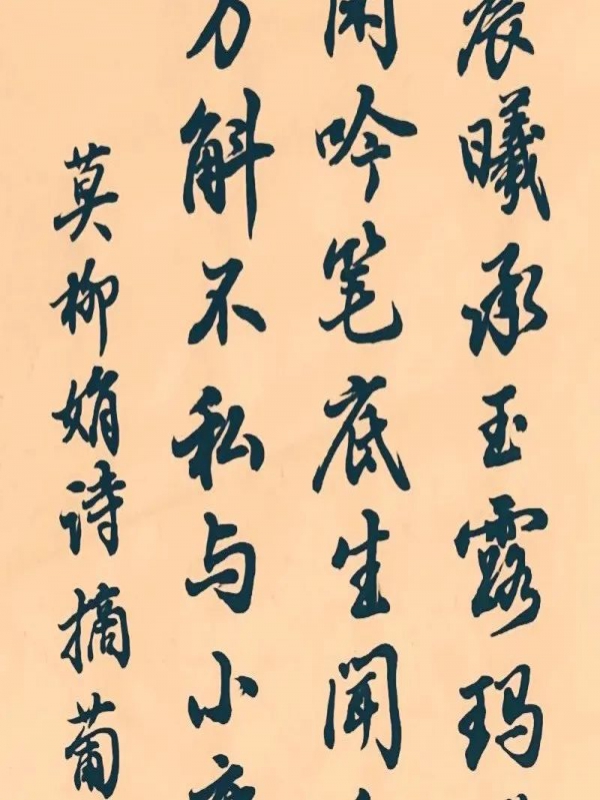 晨曦承玉露玛
闲吟笔底生闻
万斛不私与小
莫柳娟诗摘葡